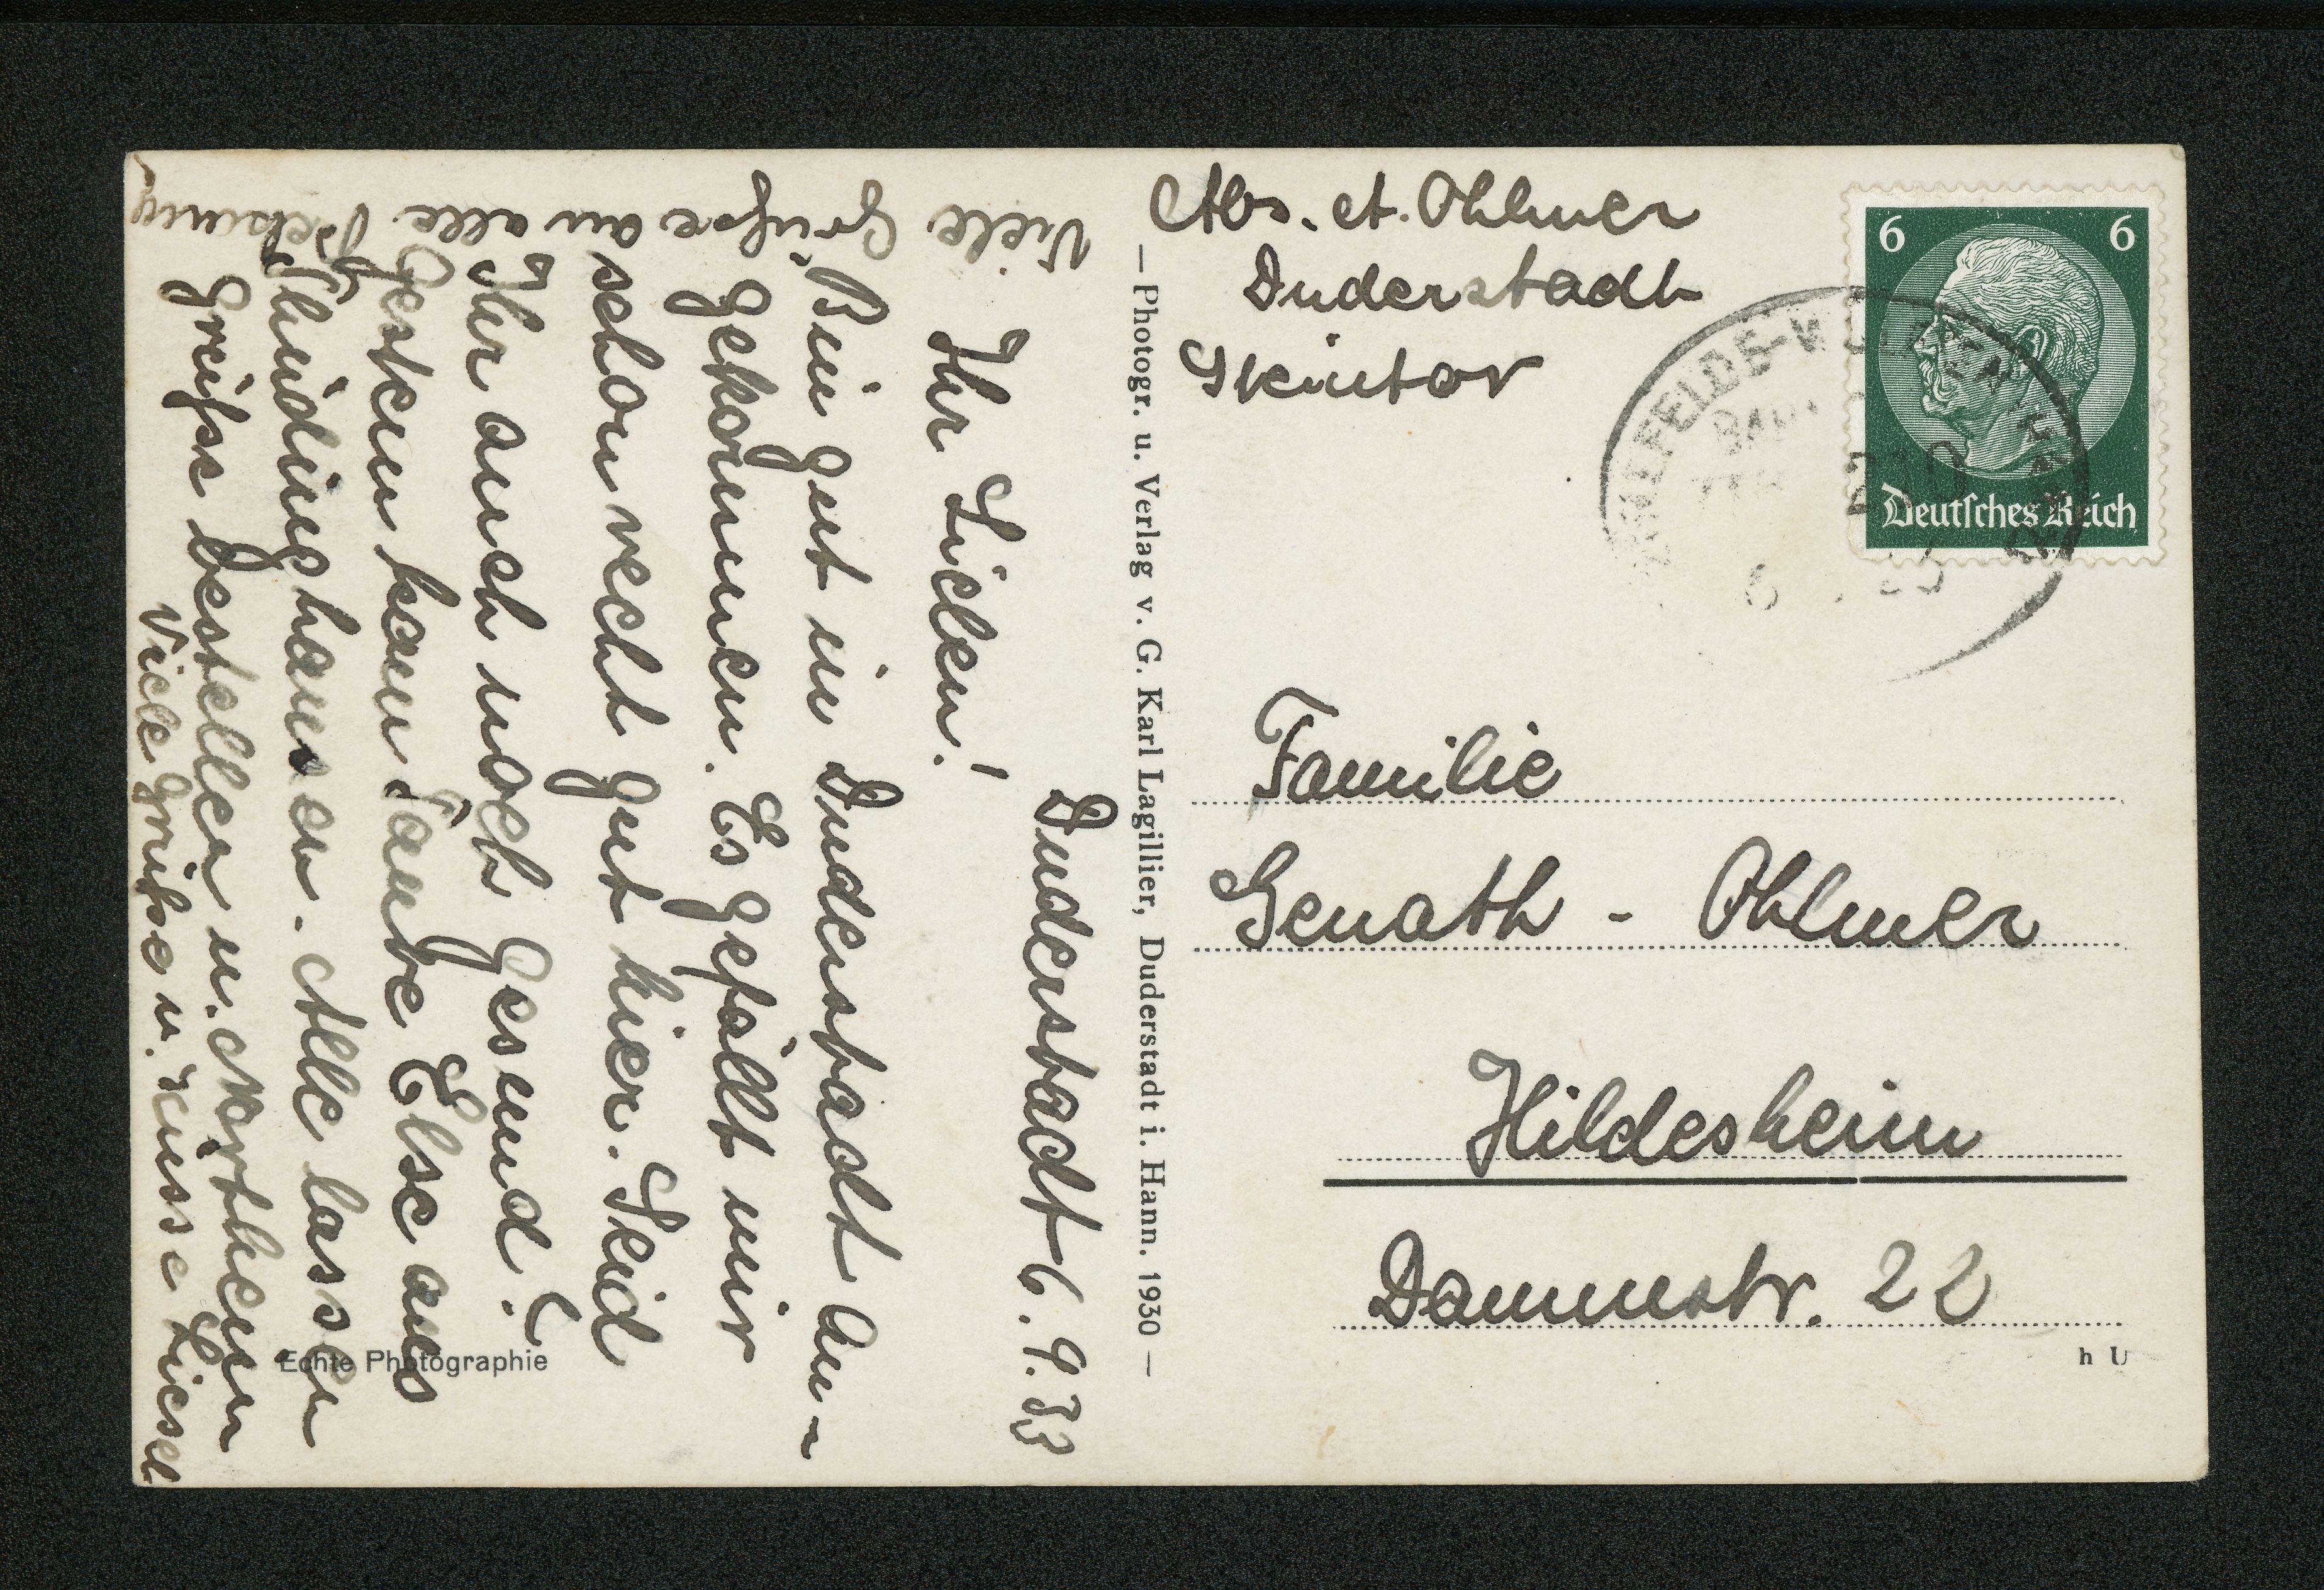 Abs. A. Ohlmer
Duderstadt
Steintor
6 6
Deutsches Reich
Familie
Genath - Ohlmer
Hildesheim
Dammstr. 22
h U
— Photogr. u. Verlag v. G. Karl Lagillier, Duderstadt i. Hann. 1930 —
Duderstadt 6.9.33
Ihr Lieben!
Bin gut in Duderstadt an-
gekommen. Es gefällt mir
schon recht gut hier. Seid
Ihr auch noch gesund?
Gestern kam Tante Else aus
Thüdinghausen. Alle lassen
grüßen bestellen u.
Viele Grüße u. Küsse Liesel
Viele Grüße an alle
Echte Photographie